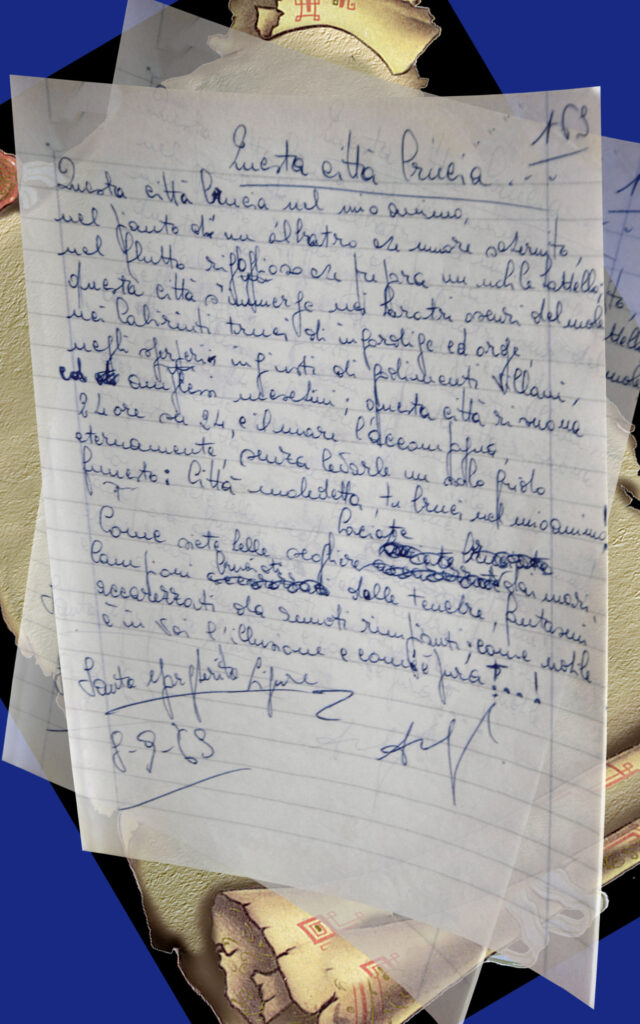 163
Questa città brucia...
Questa città brucia nel mio animo,
nel pianto di un albatro che muore solo,
nel flutto che prepara un nobile battello,
questa città s'immerge nei baratri oscuri del
nei labirinti truci di ingordige ed orge,
negli ingiusti di Villani,
ed amplessi meschini; questa città risuona
24 ore su 24, e il mare l'accompagna,
eternamente, senza un solo grido
funesto: Città maledetta, tu bruci nel mio animo!
Come siete belle scogliere baciate dai mari,
Lampioni bruciati dalle tenebre, fantasmi
accarezzati da remoti rimpianti; come nobile
è in voi l'illusione e com'è pura!...!
Santa Margherita Ligure
8-9-63